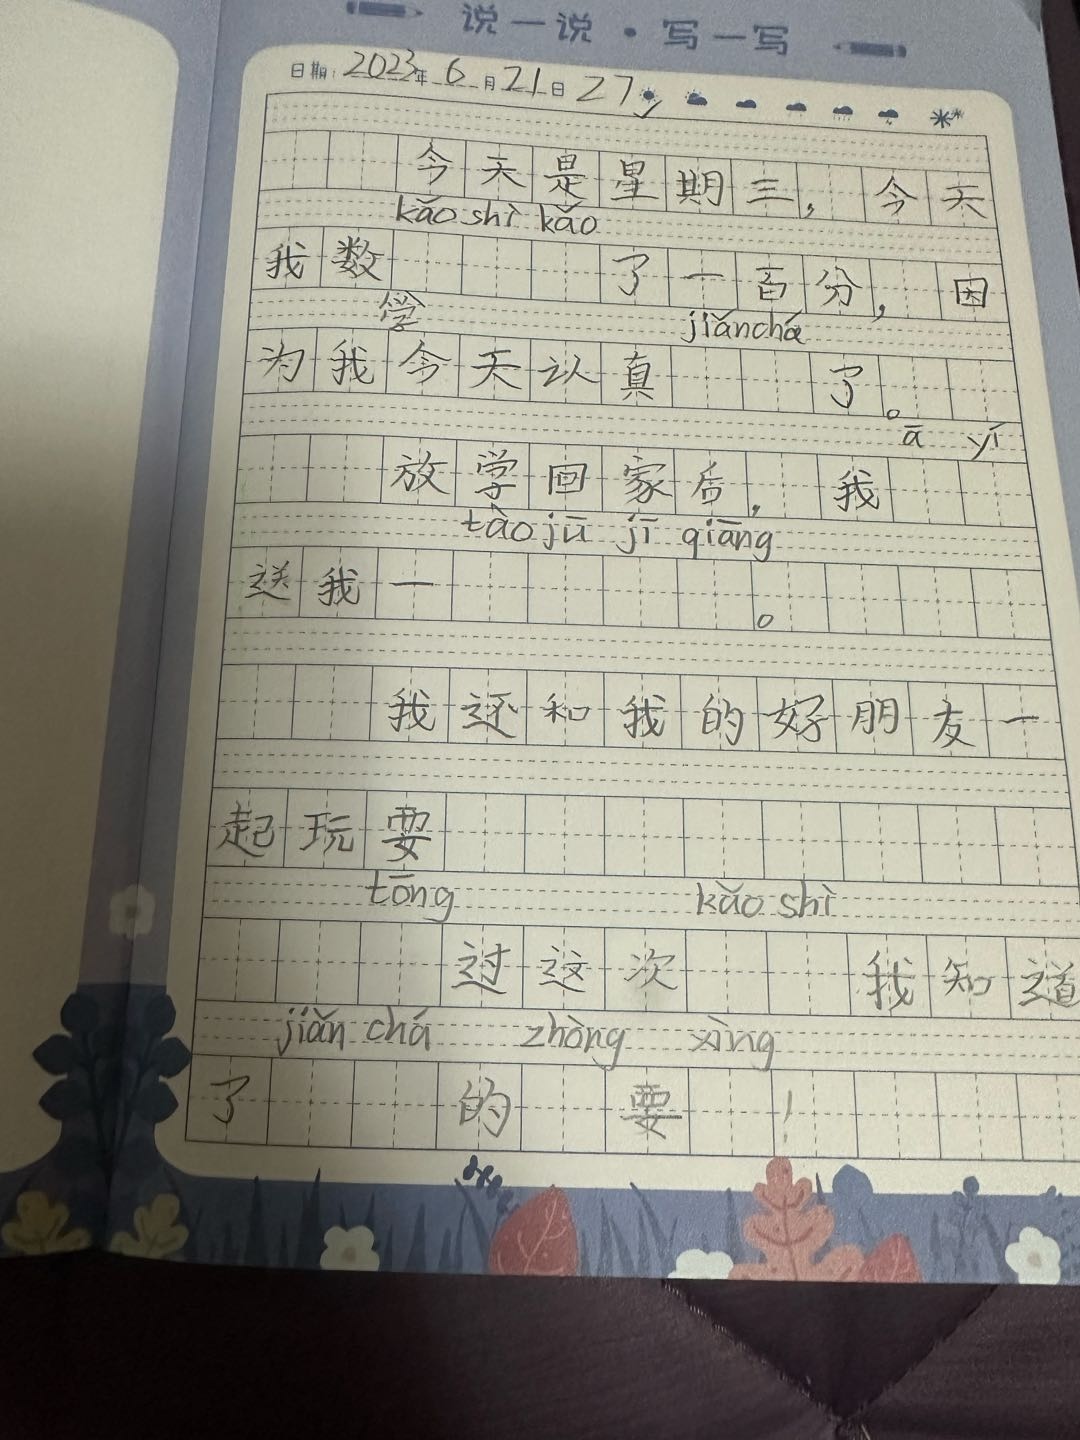 说一说·写一写
日期：2023年6月21日 27
今天是星期三，今天
kǎo shì kǎo
我数了一百分，因
学 jiǎnchá
为我今天认真了。
ā yí
放学回家后，我
tào jū jī qiāng
送我一。
我还和我的好朋友一
起玩要
tōng kǎo shì
过这次我知道
jiǎn chá zhòng xìng
了的要！